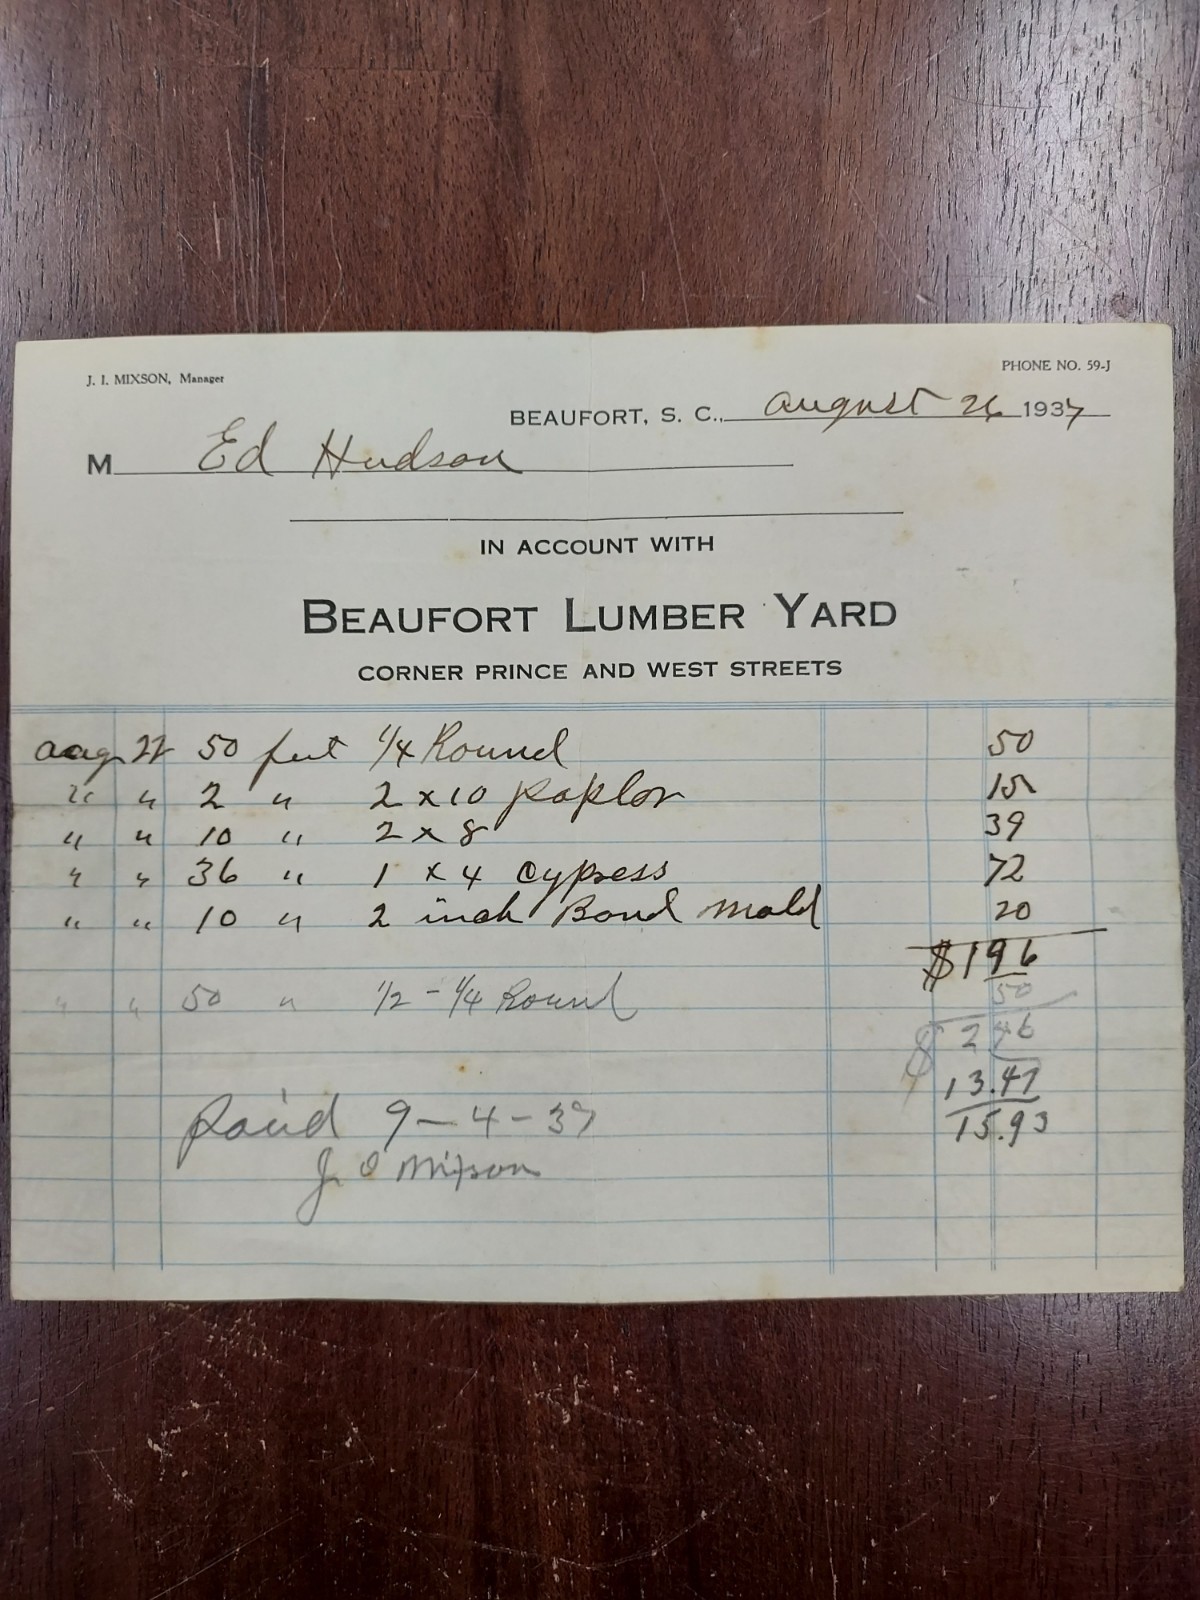 J. I. MIXSON, Manager
PHONE NO. 59-J
BEAUFORT, S. C., August 26 1937
M Ed Hudson
IN ACCOUNT WITH
BEAUFORT LUMBER YARD
CORNER PRINCE AND WEST STREETS
Aug 22 50 feet 1/4 Round 50
" " 2 " 2 x 10 Poplor 15
" " 10 " 2 x 8 39
" " 36 " 1 x 4 cypress 72
" " 10 " 2 inch Band Mold 20
$196
50
" " 50 " 1/2 - 1/4 Round
$ 2 46
13.47
15.93
Paid 9-4-37
J I Mixson